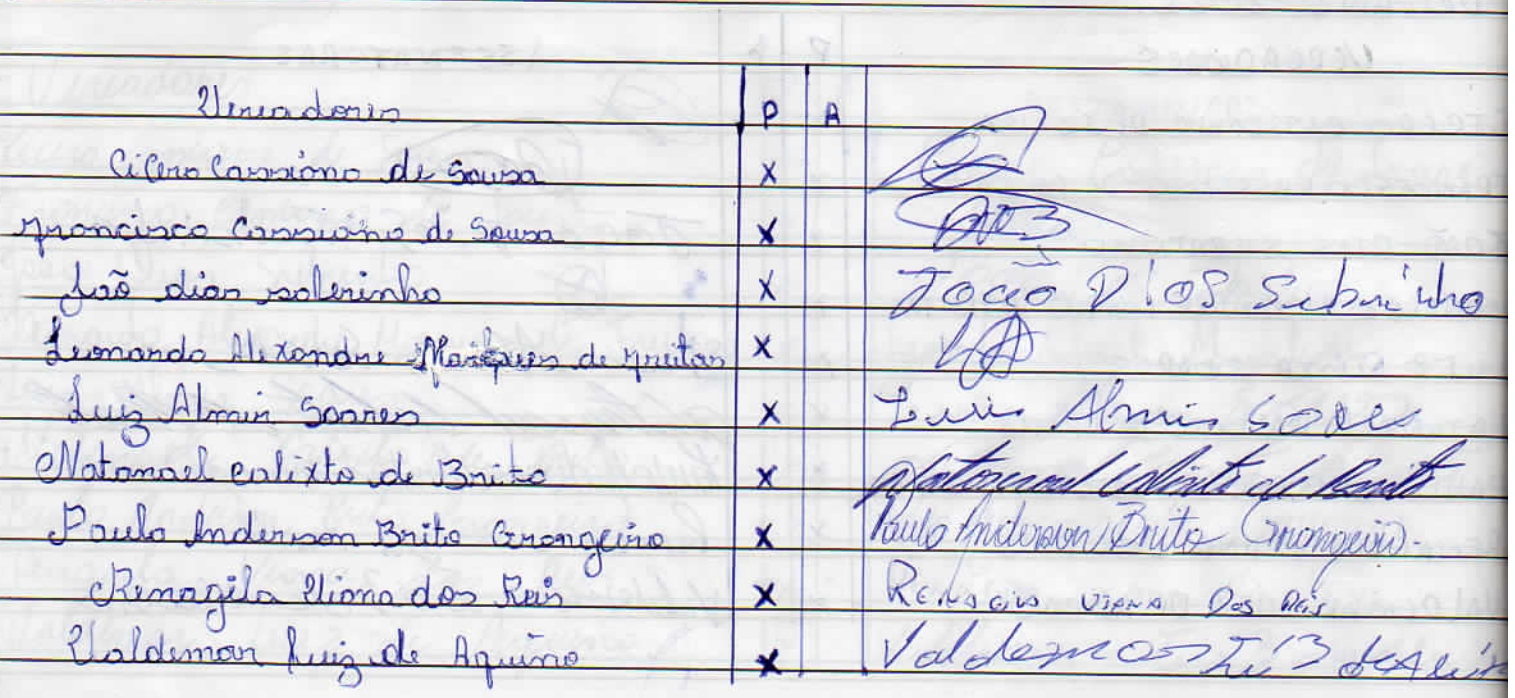 Vereadores P A
Cícero Cassiano de Sousa X
Francisco Cassiano de Sousa X
João dias sobrinho X João Dias Subrinho
Leonardo Alexandre Marques de Freitas X
Luiz Almir Soares X Luis Almir Soares
Natanael calixto de Brito X Natanael Calixto de Brito
Paulo Anderson Brito Grangeiro X Paulo Anderson Brito Grangeiro.
Renagila Viana dos Reis X Viana Dos Reis
Valdemar Luiz de Aquino X Valdemar